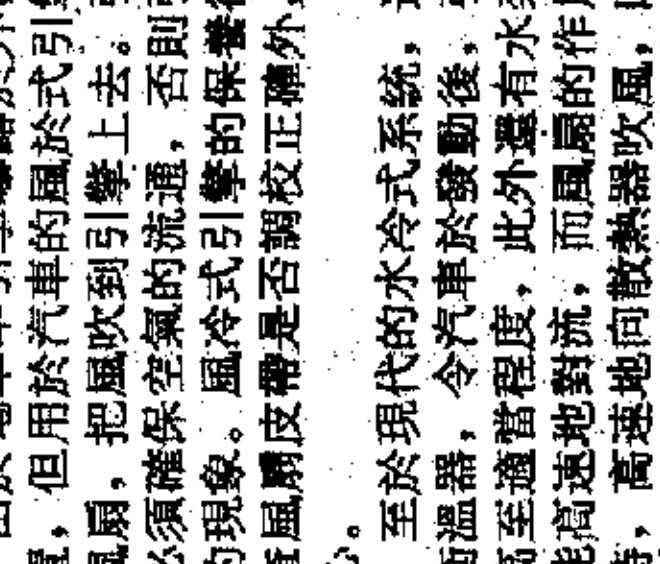 量，但用於汽車的風於式引
風扇，把風吹到引擎上去。
必須確保空氣的流通，否則
的現象。風冷式引擎的保養
風扇皮帶是否調校正確外，
心。
至於現代的水冷式系統，
溫器，令汽車於發動後，
至適當程度，此外還有水
能高速地對流，而風扇的作
，高速地向散熱器吹風，